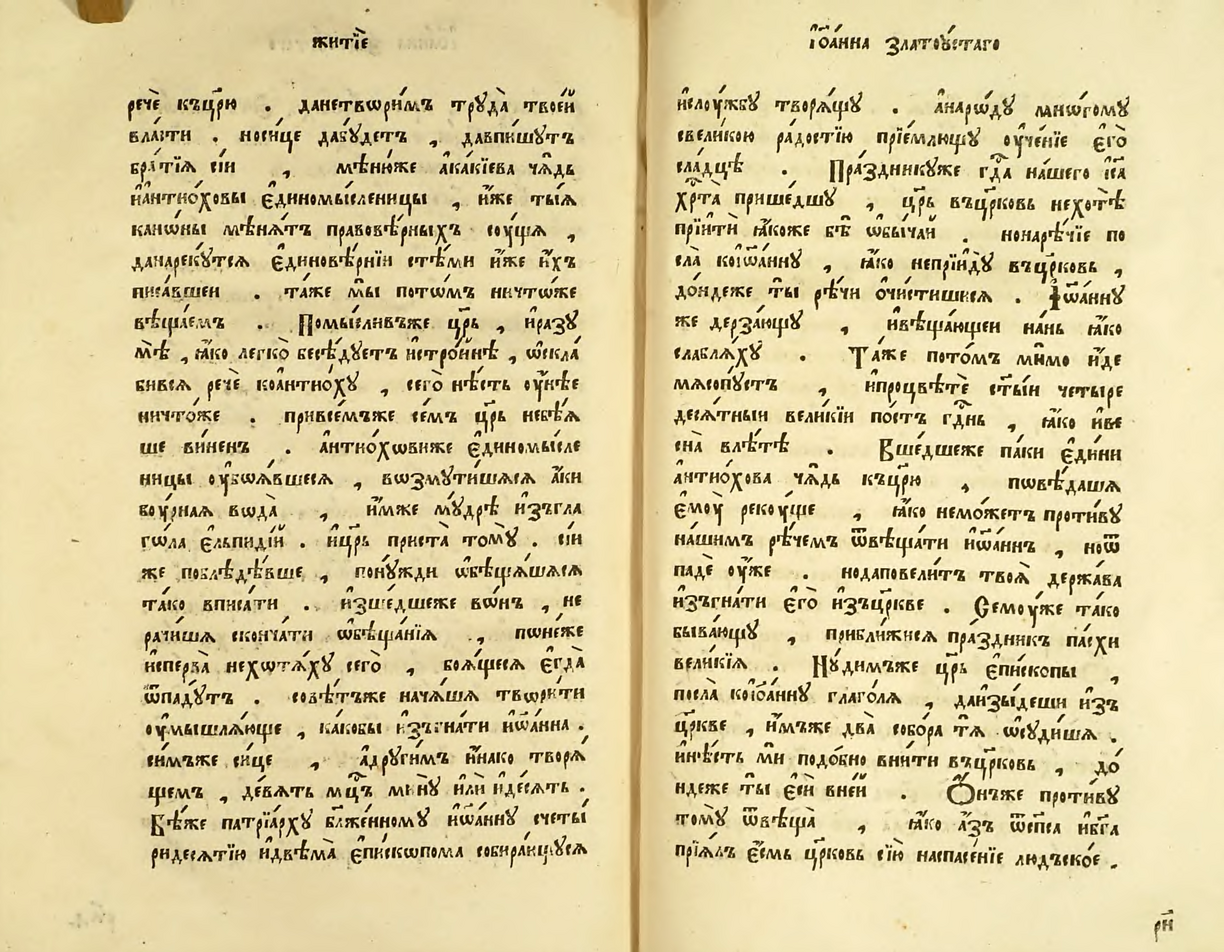 житїе
речѐ къцр҃ю . данетвѡри́мъ трꙋда̀ твоеѝ
вла́сти . но́сице дабꙋ́детъ , давпи́шꙋтъ
бра́тїѧ сїи , мѣню́же а҆ка́кїева ча̑дь
и҆антїо́ховы є҆диномы́сленицы , и҆̀же ты́ѧ
канѡ́ны мѣнѧ́тъ правовѣ́рныхъ сꙋ́щѧ ,
данареку́тсѧ є҆диновѣ́рнїи стѣ́ми и҆̀же и҆́хъ
писа́вшеи . та́же мы̀ пото́мъ ничто́же
вѣща́емъ . Помы́сливъже цр҃ь , и҆разꙋ
мѣ̀ , ꙗ҆́ко легко̀ бесѣ́дꙋетъ и҆стро́йнѣ , ѡ҆скла́
бивсѧ речѐ коа҆нтїо́хꙋ , сего̀ нѣ́сть ᲂу҆нѣ́е
ничто́же . привсе́мъже се́мъ цр҃ь небѣ́ѧ
ше ви́ненъ . а҆нтїо́хѡвиже є҆диномы́сле
ницы ᲂу҆боѧ́вшесѧ , вѡзмꙋти́шасѧ а҆́ки
бо́урнаѧ вѡда̀ , и҆́мже мꙋ́дрѣ и҆зъгла
го́ла є҆лпи́дїй . и҆цр҃ь приста̀ томꙋ̀ . сїи
же поблѣдѣ́вше , понꙋ́жди ѡ҆бѣща́шасѧ
та́ко вписа́ти . и҆зше́дшеже во́нъ , не
рачи́шѧ сконча́ти ѡ҆бѣща́нїѧ , поне́же
и҆сперва̀ нехотѧ́хꙋ сего̀ , боѧ́щесѧ є҆гда̀
ѿпадꙋ́тъ . совѣ́тъже нача́шѧ твори́ти
ᲂу҆мышлѧ́юще , ка́кобы и҆зъгна́ти и҆ѡ҆а́нна .
си́мъже си́це , а҆дрꙋги́мъ и҆́нако творѧ́
щемъ , де́вѧть мц҃ъ минꙋ̀ и҆лѝ и҆де́сѧть .
Бѣ́же патрїа́рхꙋ бл҃же́нномꙋ и҆ѡ҆а́ннꙋ счеты́
ридесѧ́тїю и҆двѣма̀ є҆пи́скѡпома собира́ющꙋсѧ
і҆ѡ҆а́нна златоꙋ́стаго
и҆слꙋ́жбꙋ творѧ́щꙋ . а҆наро́дꙋ мно́гомꙋ
свели́кою ра́достїю прїе́млющꙋ ᲂу҆че́нїе є҆го̀
сла́дцѣ . Пра́здникꙋже гд҃а на́шего і҆с҃а
хр҃та̀ прише́дшꙋ , цр҃ь въцр҃ковь нехотѣ̀
прїитѝ ꙗ҆́коже бѣ̀ ѡ҆бы́чай . нонарѣ́чїе по
сла̀ кои҆ѡ҆а́ннꙋ , ꙗ҆́ко непрїидꙋ̀ въцр҃ковь ,
до́ндеже ты̀ рѣ́чи ѡ҆чи́стишисѧ . І҆ѡ҆а́ннꙋ
же дерза́ющꙋ , и҆вѣща́ющеи на́нь ꙗ҆́ко
слаблѧ́хꙋ . Та́же пото́мъ ми́мо и҆́де
мѧсопꙋ́стъ , и҆процвѣ́те ст҃ы́й четыре
десѧ́тныи вели́кїи по́стъ гд҃нь , ꙗ҆́ко и҆ве
сна̀ влѣ́тѣ . Вше́дшеже па́ки є҆ди́ни
а҆нтїо́хова ча̑дь къцр҃ю , повѣ́дашѧ
є҆моу̀ реко́уще , ꙗ҆́ко немо́жетъ противꙋ
на́шимъ рѣ́чемъ ѿвѣща́ти и҆ѡ҆а́ннъ , ноѿ
паде ᲂу҆же . нодаповели́тъ твоѧ̀ держа́ва
и҆зъгна́ти є҆го̀ и҆зъцр҃кве . Семоу́же та́ко
быва́ющꙋ , прибли́жисѧ пра́здникъ па́схи
вели́кїѧ . Нꙋди́мъже цр҃ь є҆пи́скопы ,
посла̀ кои҆ѡ҆а́ннꙋ глаго́лѧ , даи҆зы́деши и҆зъ
цр҃кве , и҆́мъже два̀ собо́ра тѧ̀ ѡ҆сꙋди́шѧ .
и҆нѣ́сть мѝ подо́бно вни́ти въцр҃ковь , до́
ндеже ты̀ є҆сѝ вне́й . Ѻ҆́нъже противꙋ
томꙋ̀ ѿвѣща̀ , ꙗ҆́ко а҆́зъ ѿспса и҆бг҃а
прїѧ́лъ є҆́смь цр҃ковь сїю̀ наспасе́нїе людьско́е .
рн҃